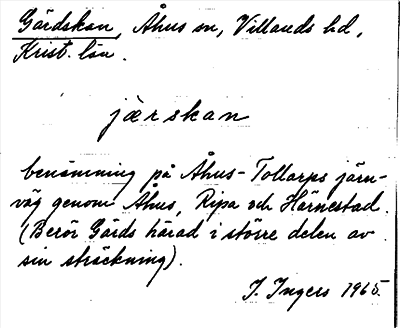 Gärdskan, Åhus sn, Villands hd,
Krist. län.
järskan
benämning på Åhus-Tollarps järn-
väg genom Åhus, Ripa och Härnestad.
(Berör Gärds härad i större delen av
sin sträckning).
I. Ingers 1965.